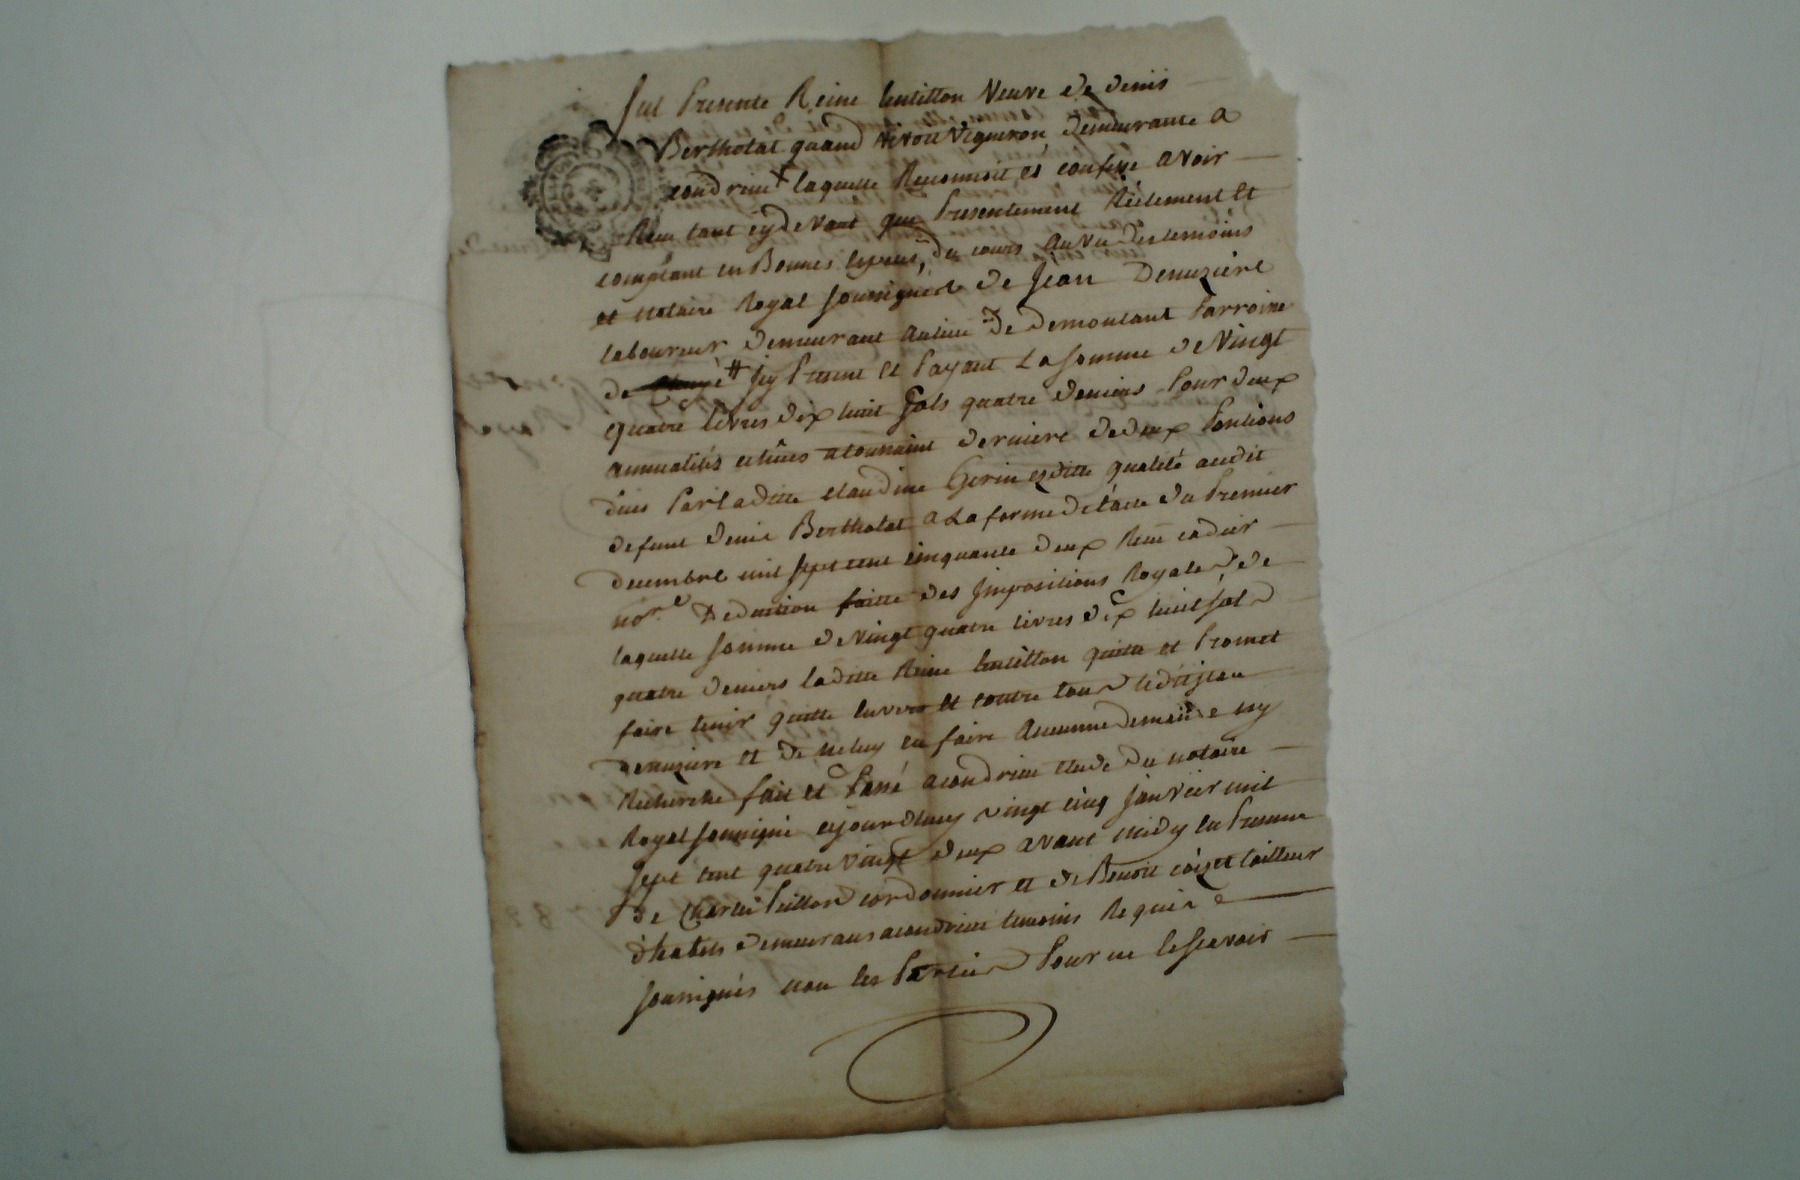 fut Presente Reine Veuve de denis
Bertholat quand vivoit Vigneron demeurante a
condrieu laquelle Reconnoit et confesse avoir
Reçu tant cydevant que Presentement Réelement et
comptant en Bonnes Especes du cours au vu des temoins
et notaire Royal soussigné de Jean Denuziere
laboureur demeurant au lieu de demontant Parroisse
de # icy Present et Payant La somme de Vingt
quatre livres dix huit sols quatre deniers Pour deux
annualités echües a toussaint derniere de deux Pentions
dües Par la ditte claudine Gerin esditte qualité audit
defunt denis Bertholat a La forme de l'acte du Premier
decembre mil sept cent cinquante deux Reçu
nore Deduction faitte des Impositions Royales, de
laquelle somme de Vingt quatre livres dix huit sols
quatre deniers laditte Reine quitte et Promet
faire tenir quitte envers et contre tous ledit jean
denuziere et de ne luy en faire Aucune demande ny
Recherche fait et Passé a condrieu etude du notaire
Royal soussigné cejourdhuy vingt cinq janvier mil
sept cent quatre vingt deux avant midy en Presence
de Charles Peillon cordonnier et de Benoit tailleur
d'habits demeurans a condrieu temoins Requis
soussignés non les Parties Pour ne le sçavoir